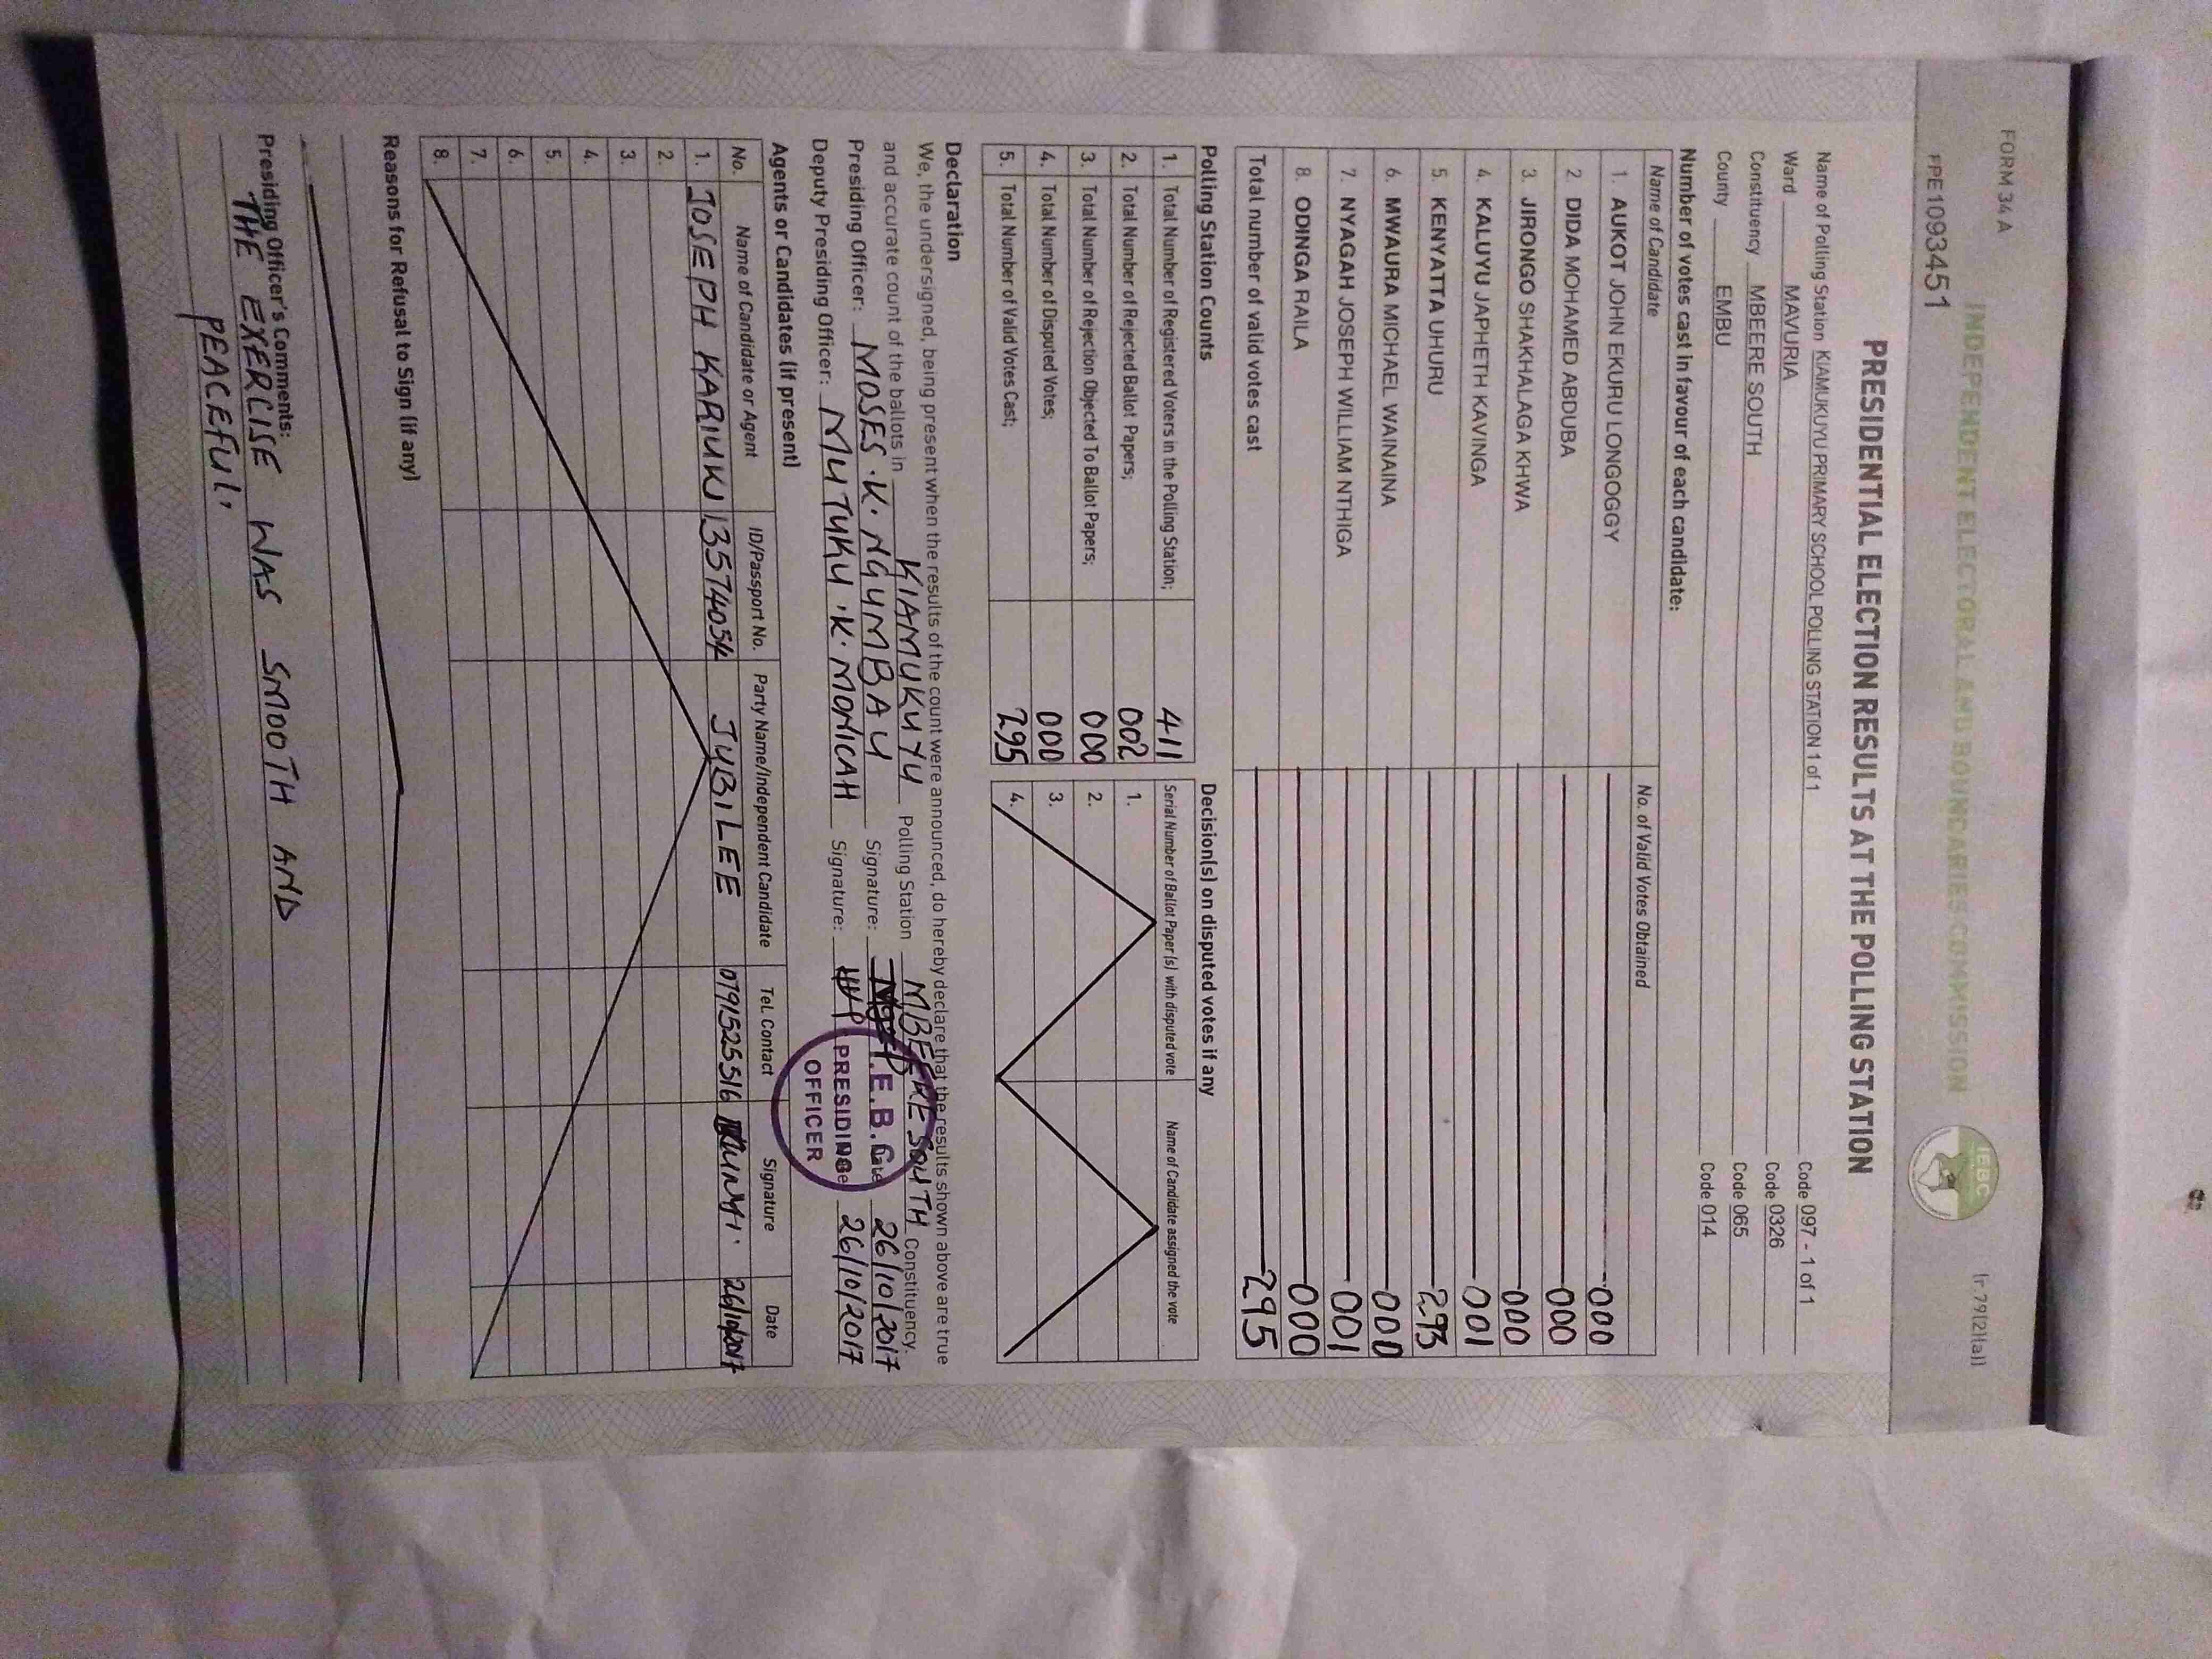 FORM 34 A
INDEPENDENT ELECTORAL AND BOUNDARIES COMMISSION
IEBC
(r.79(2)(a))
PPE1093451
PRESIDENTIAL ELECTION RESULTS AT THE POLLING STATION
Name of Polling Station KIAMUKUYU PRIMARY SCHOOL POLLING STATION 1 of 1 Code 097 - 1 of 1
Ward MAVURIA Code 0326
Constituency MBEERE SOUTH Code 065
County EMBU Code 014
Number of votes cast in favour of each candidate:
Name of Candidate No. of Valid Votes Obtained
1. AUKOT JOHN EKURU LONGOGGY 000
2. DIDA MOHAMED ABDUBA 000
3. JIRONGO SHAKHALAGA KHWA 000
4. KALUYU JAPHETH KAVINGA 001
5. KENYATTA UHURU 293
6. MWAURA MICHAEL WAINAINA 000
7. NYAGAH JOSEPH WILLIAM NTHIGA 001
8. ODINGA RAILA 000
Total number of valid votes cast 295
Polling Station Counts Decision(s) on disputed votes if any
1. Total Number of Registered Voters in the Polling Station; 411 Serial Number of Ballot Paper (s) with disputed vote Name of Candidate assigned the vote
2. Total Number of Rejected Ballot Papers; 002 1.
3. Total Number of Rejection Objected To Ballot Papers; 000 2.
4. Total Number of Disputed Votes; 000 3.
5. Total Number of Valid Votes Cast; 295 4.
Declaration
We, the undersigned, being present when the results of the count were announced, do hereby declare that the results shown above are true
and accurate count of the ballots in KIAMUKUYU Polling Station MBEERE SOUTH Constituency.
Presiding Officer: MOSES .K. NGUMBAU Signature: Date 26/10/2017
Deputy Presiding Officer: MUTUKU .K. MONICAH Signature: Date 26/10/2017
I.E.B.C
PRESIDING
OFFICER
Agents or Candidates (if present)
No. Name of Candidate or Agent ID/Passport No. Party Name/Independent Candidate Tel. Contact Signature Date
1. JOSEPH KARIUKI 13574054 JUBILEE 0791525516 26/10/2017
2.
3.
4.
5.
6.
7.
8.
Reasons for Refusal to Sign (if any)
Presiding Officer's Comments:
THE EXERCISE WAS SMOOTH AND
PEACEFUL.